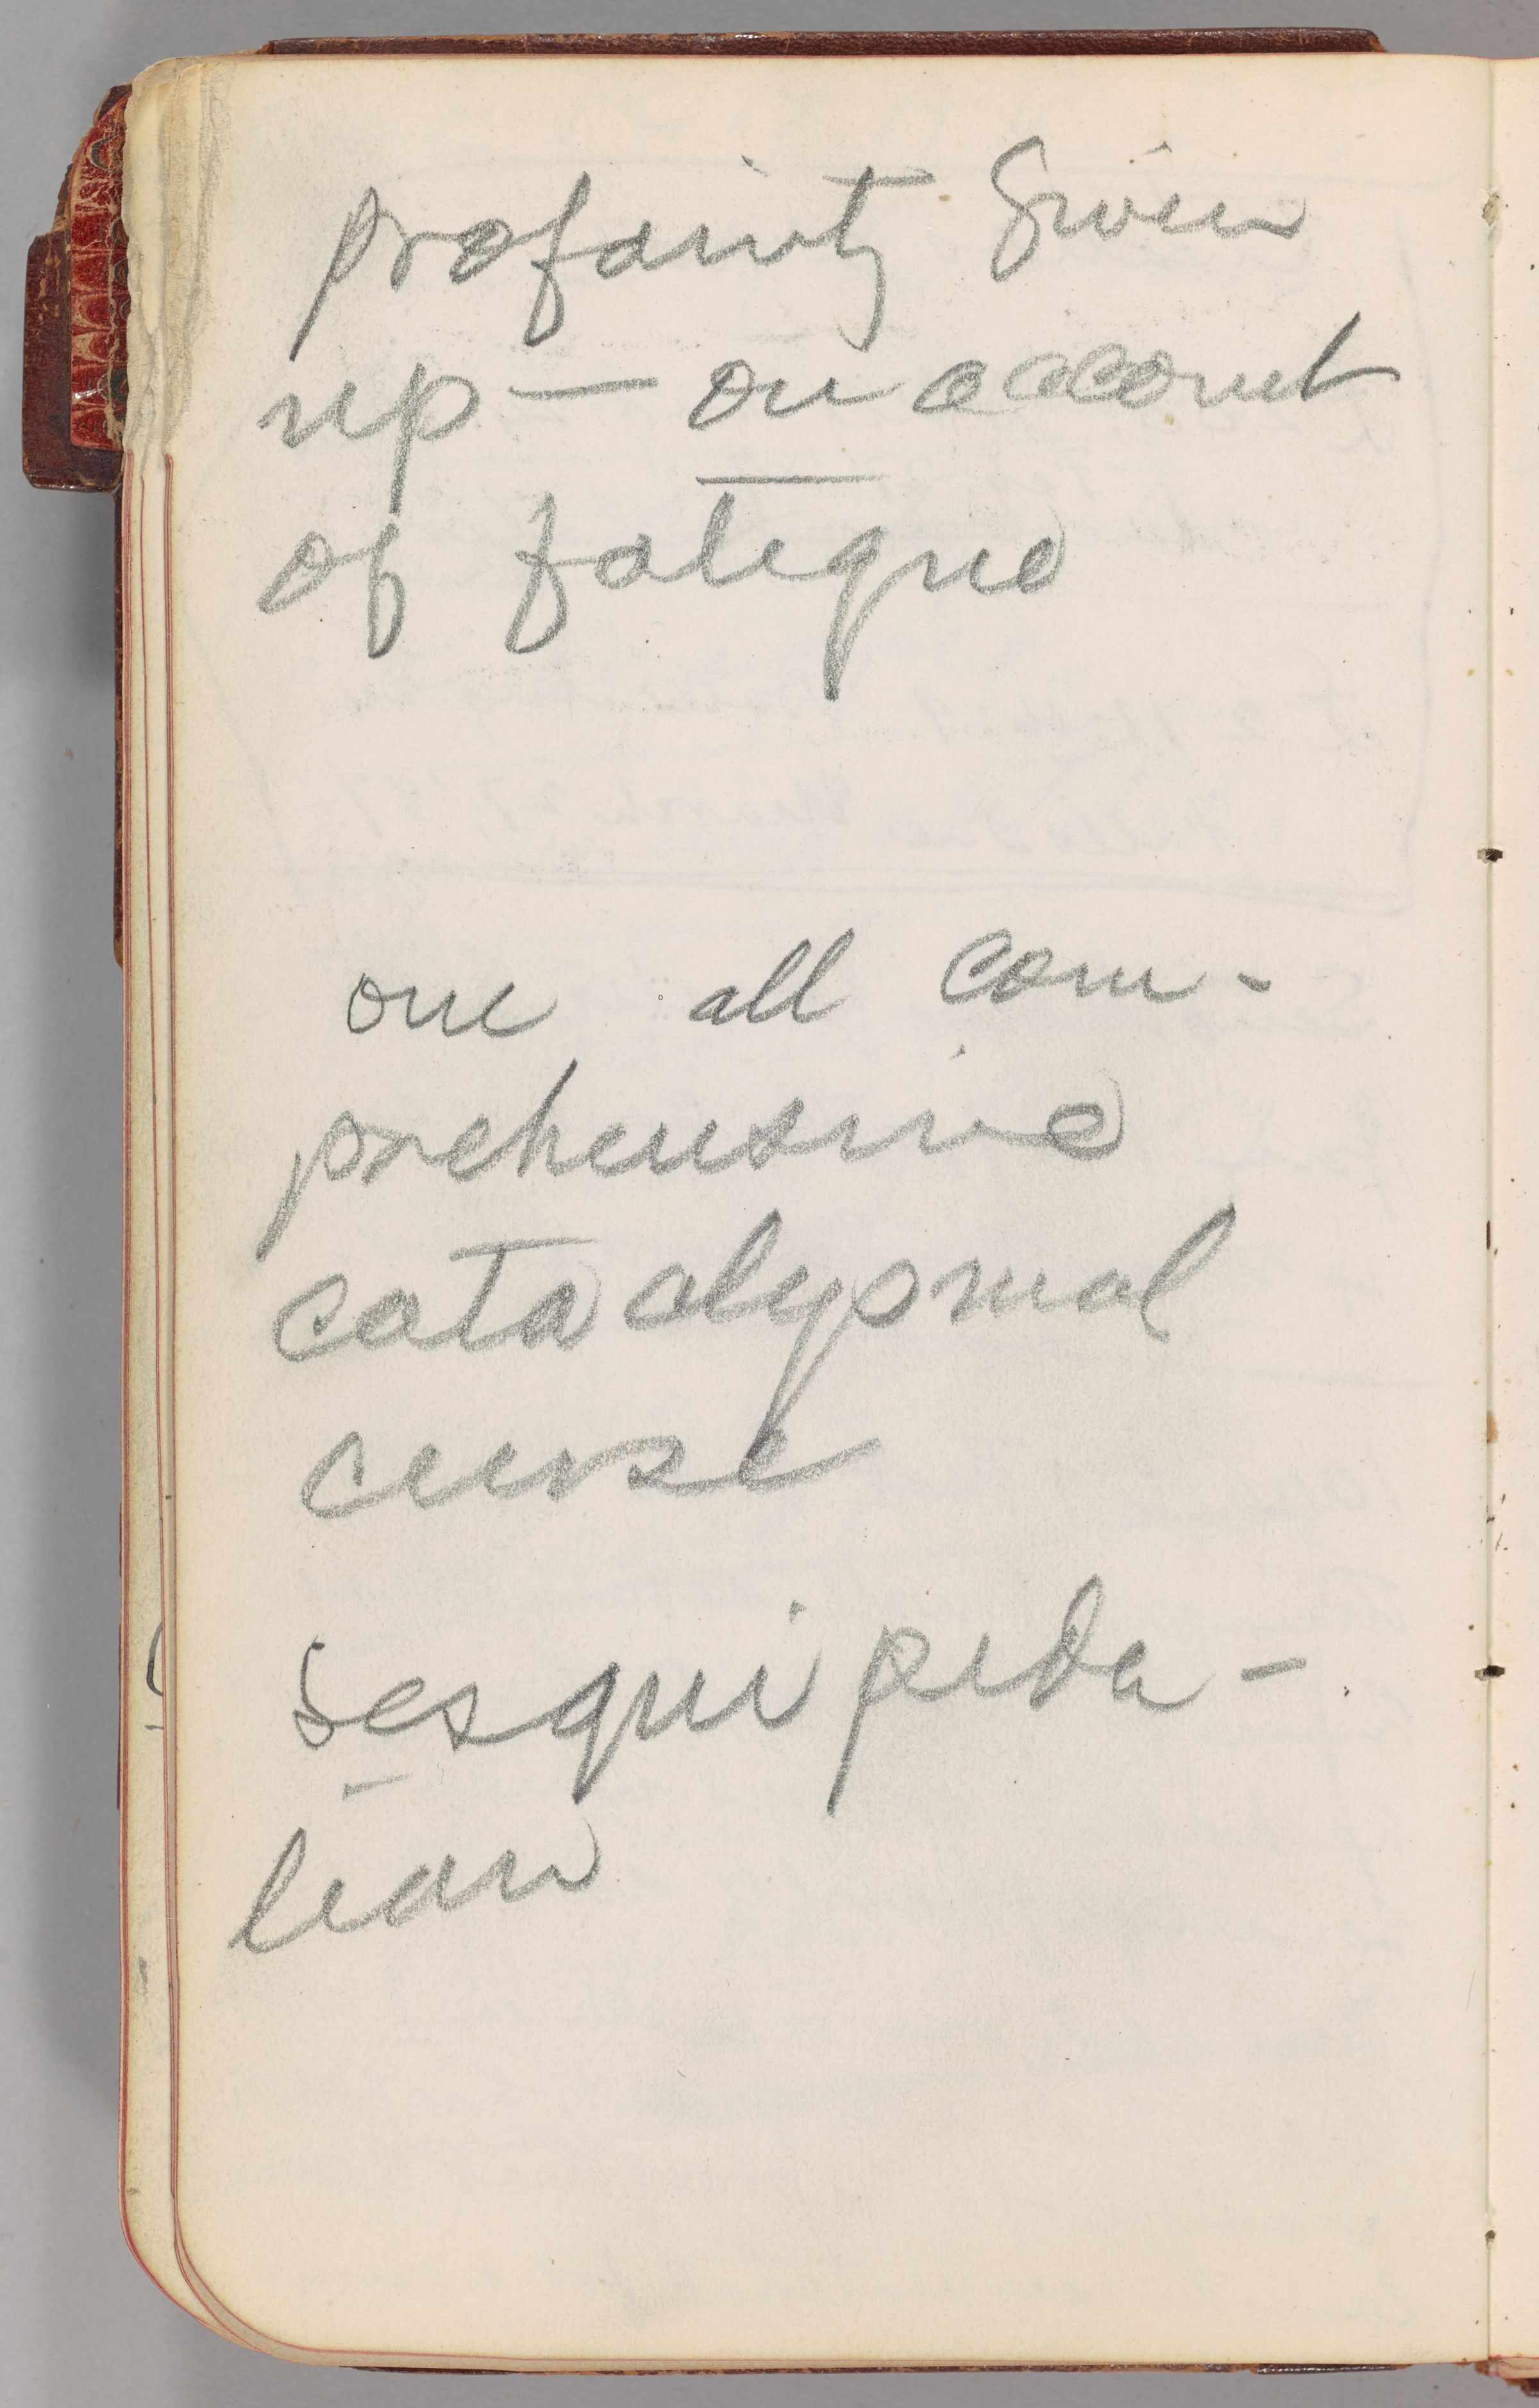 profanity given
up — on account
of fatigue
one all com-
prehensive
cataclysmal
curse
sesquipeda-
lian